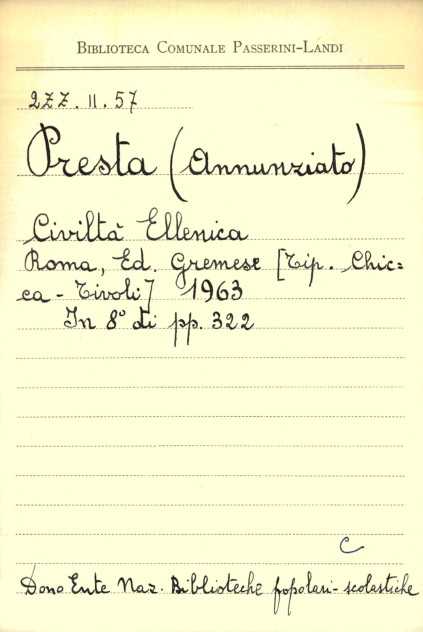 BIBLIOTECA COMUNALE PASSERINI-LANDI
2ZZ.II.57
Presta (Annunziato)
Civiltà Ellenica
Roma, Ed. Gremese [Tip. Chic=
ca - Tivoli] 1963
In 8° di pp. 322
C
Dono Ente Naz. Biblioteche popolari-scolastiche